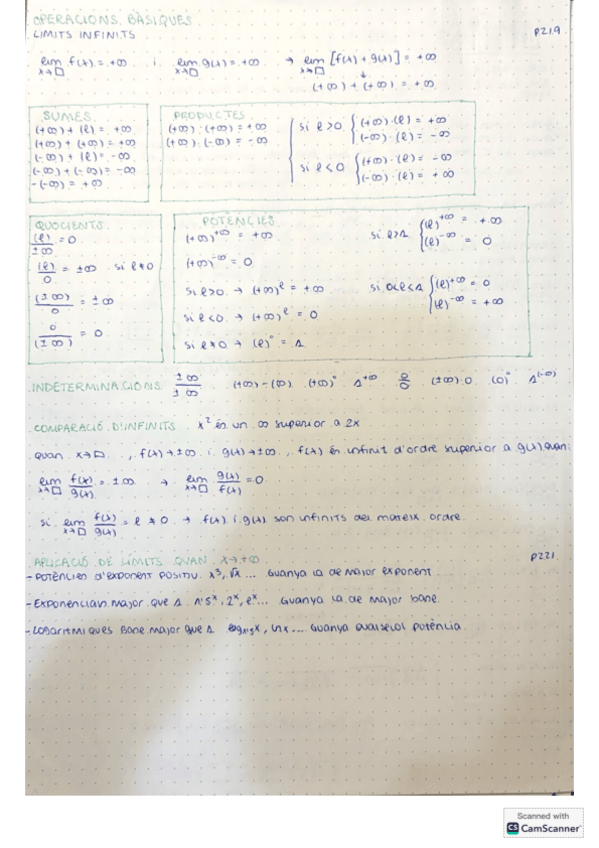 OPERACIONS BÀSIQUES
LIMITS INFINITS
p219
lim x→□ f(x) = +∞ i lim x→□ g(x) = +∞ → lim x→□ [f(x) + g(x)] = +∞
↓
(+∞) + (+∞) = +∞
SUMES
(+∞) + (l) = +∞
(+∞) + (+∞) = +∞
(-∞) + (l) = -∞
(-∞) + (-∞) = -∞
-(-∞) = +∞
PRODUCTES
(+∞) · (+∞) = +∞
(+∞) · (-∞) = -∞
si l>0 { (+∞) · (l) = +∞
(-∞) · (l) = -∞
si l<0 { (+∞) · (l) = -∞
(-∞) · (l) = +∞
QUOCIENTS
(l)/±∞ = 0
(l)/0 = ±∞ si l≠0
(±∞)/0 = ±∞
0/(±∞) = 0
POTÈNCIES
(+∞)^+∞ = +∞
(+∞)^-∞ = 0
si l>0 → (+∞)^l = +∞
si l<0 → (+∞)^l = 0
si l≠0 → (l)^0 = 1
si l>1 { (l)^+∞ = +∞
(l)^-∞ = 0
si 0<l<1 { (l)^+∞ = 0
(l)^-∞ = +∞
INDETERMINACIONS ±∞/±∞ (+∞)-(∞) (+∞)^0 1^+∞ 0/0 (±∞)·0 (0)^0 1^(-∞)
COMPARACIÓ D'INFINITS x² és un ∞ superior a 2x
quan x→□, f(x)→±∞ i g(x)→±∞, f(x) és infinit d'ordre superior a g(x) quan:
lim x→□ f(x)/g(x) = ±∞ → lim x→□ g(x)/f(x) = 0
si lim x→□ f(x)/g(x) = l ≠ 0 → f(x) i g(x) son infinits del mateix ordre
APLICACIÓ DE LÍMITS QUAN x→+∞
p221
-POTÈNCIES D'EXPONENT POSITIU. x³, √x ... Guanya la de major exponent
-EXPONENCIALS major que 1. 1'5^x, 2^x, e^x... Guanya la de major base.
-LOGARITMIQUES Base major que 1 , ln x ... Guanya qualsevol potència.
Scanned with
CS CamScanner